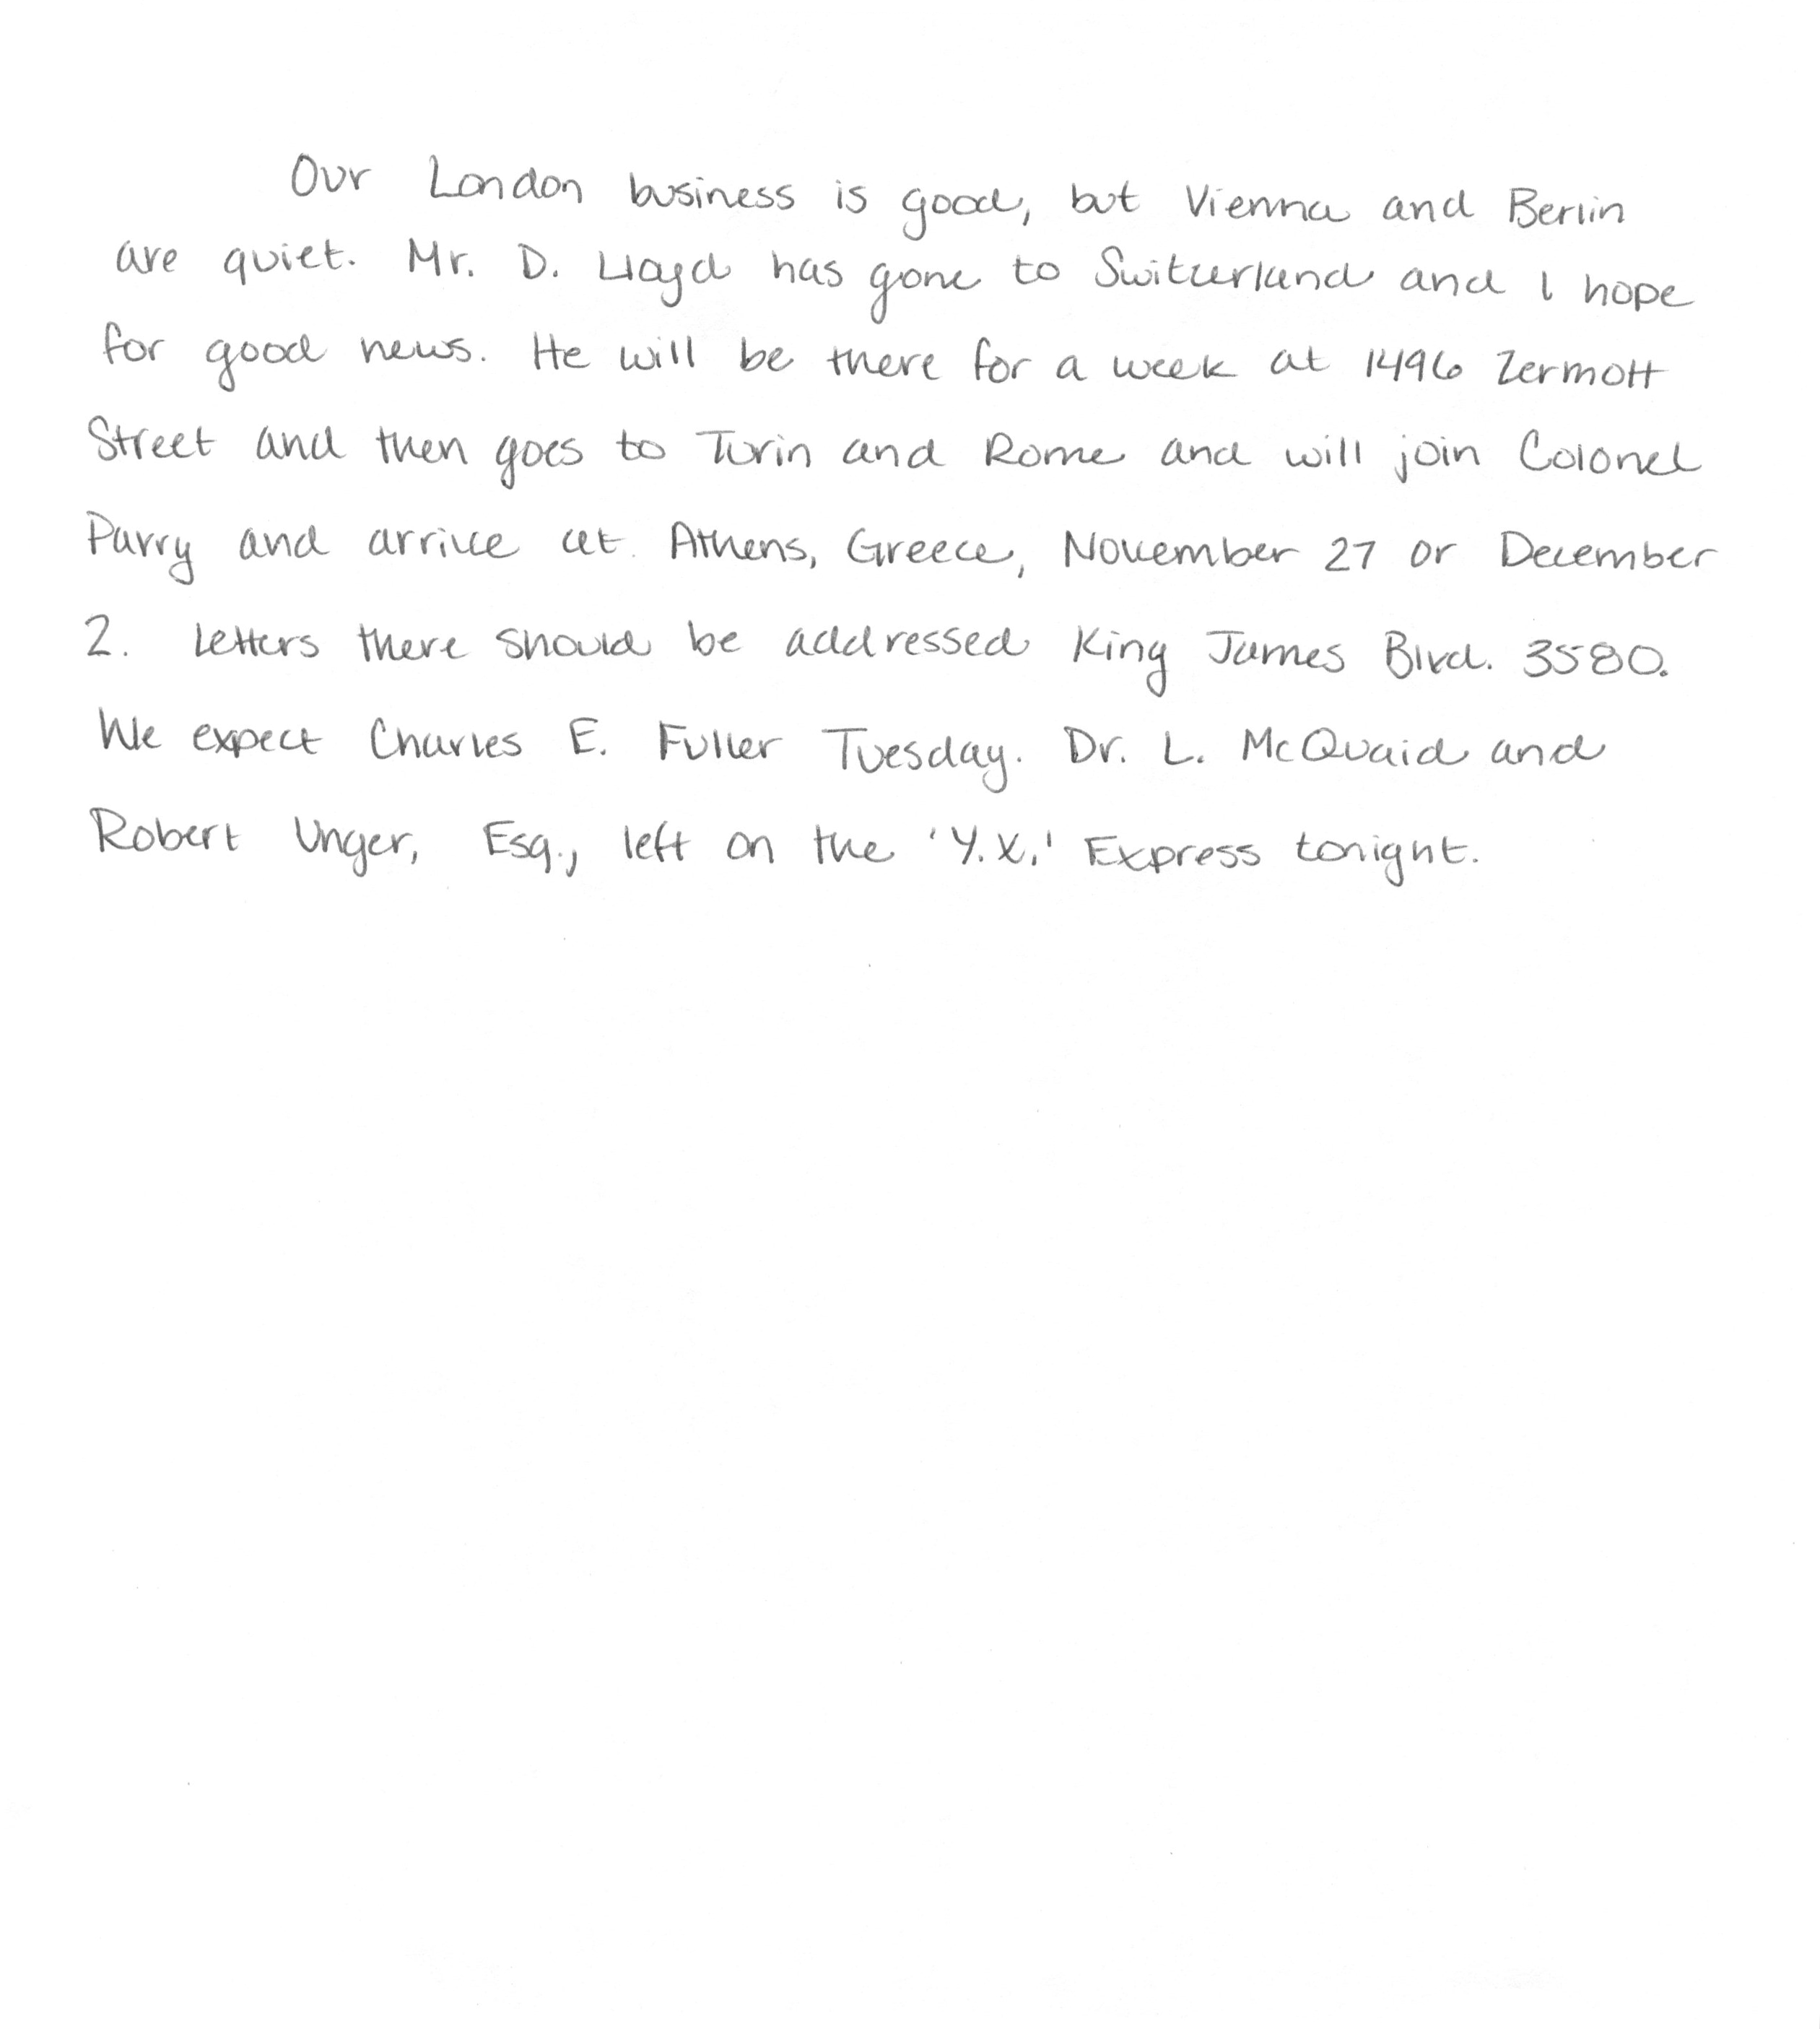 Our London business is good, but Vienna and Berlin
are quiet. Mr. D. Lloyd has gone to Switzerland and I hope
for good news. He will be there for a week at 1496 Zermott
Street and then goes to Turin and Rome and will join Colonel
Parry and arrive at Athens, Greece, November 27 or December
2. Letters there should be addressed King James Blvd. 3580.
We expect Charles E. Fuller Tuesday. Dr. L. McQuaid and
Robert Unger, Esq., left on the 'Y.X.' Express tonight.